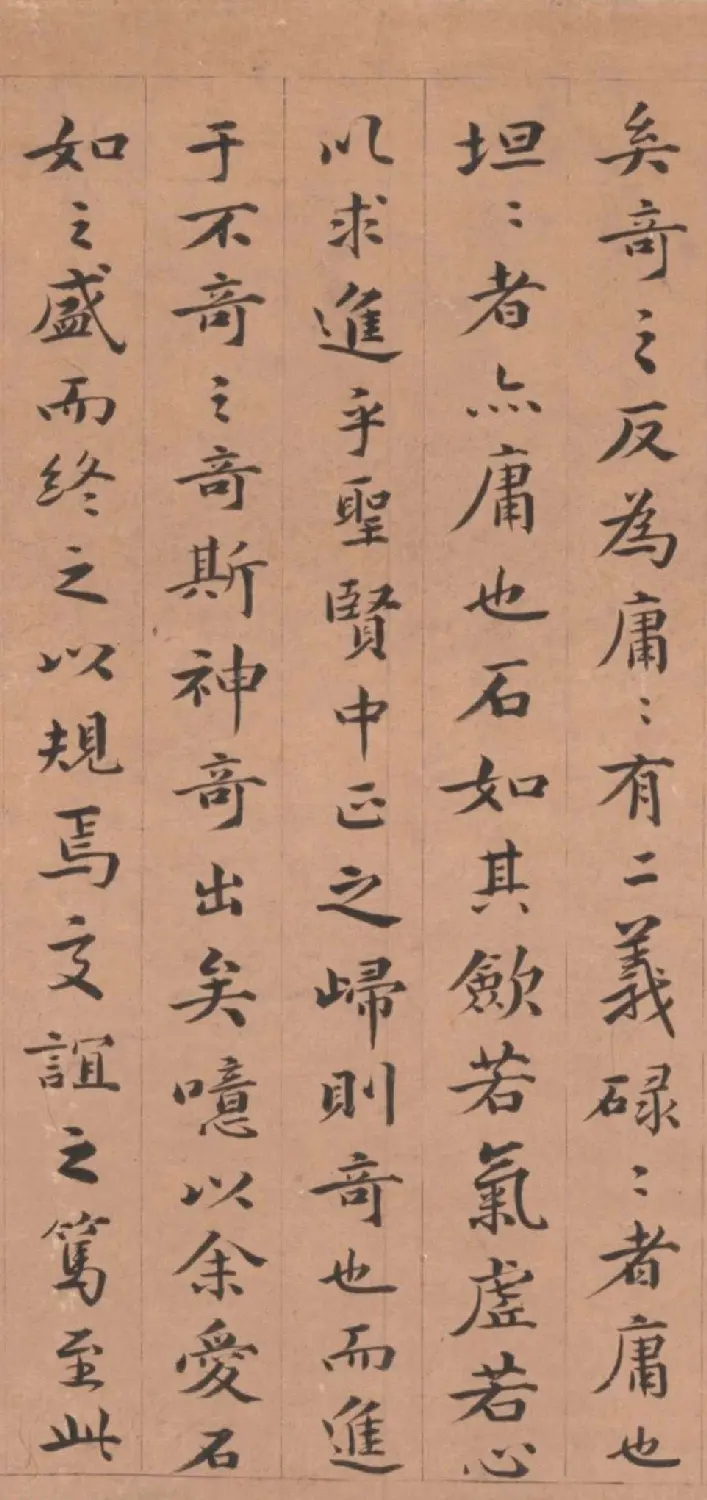 矣奇之反為庸〻有二義碌〻者庸也
坦〻者亦庸也石如其歛若氣虛若心
以求進乎聖賢中正之歸則奇也而進
于不奇之奇斯神奇出矣噫以余愛石
如之盛而終之以規焉交誼之篤至此